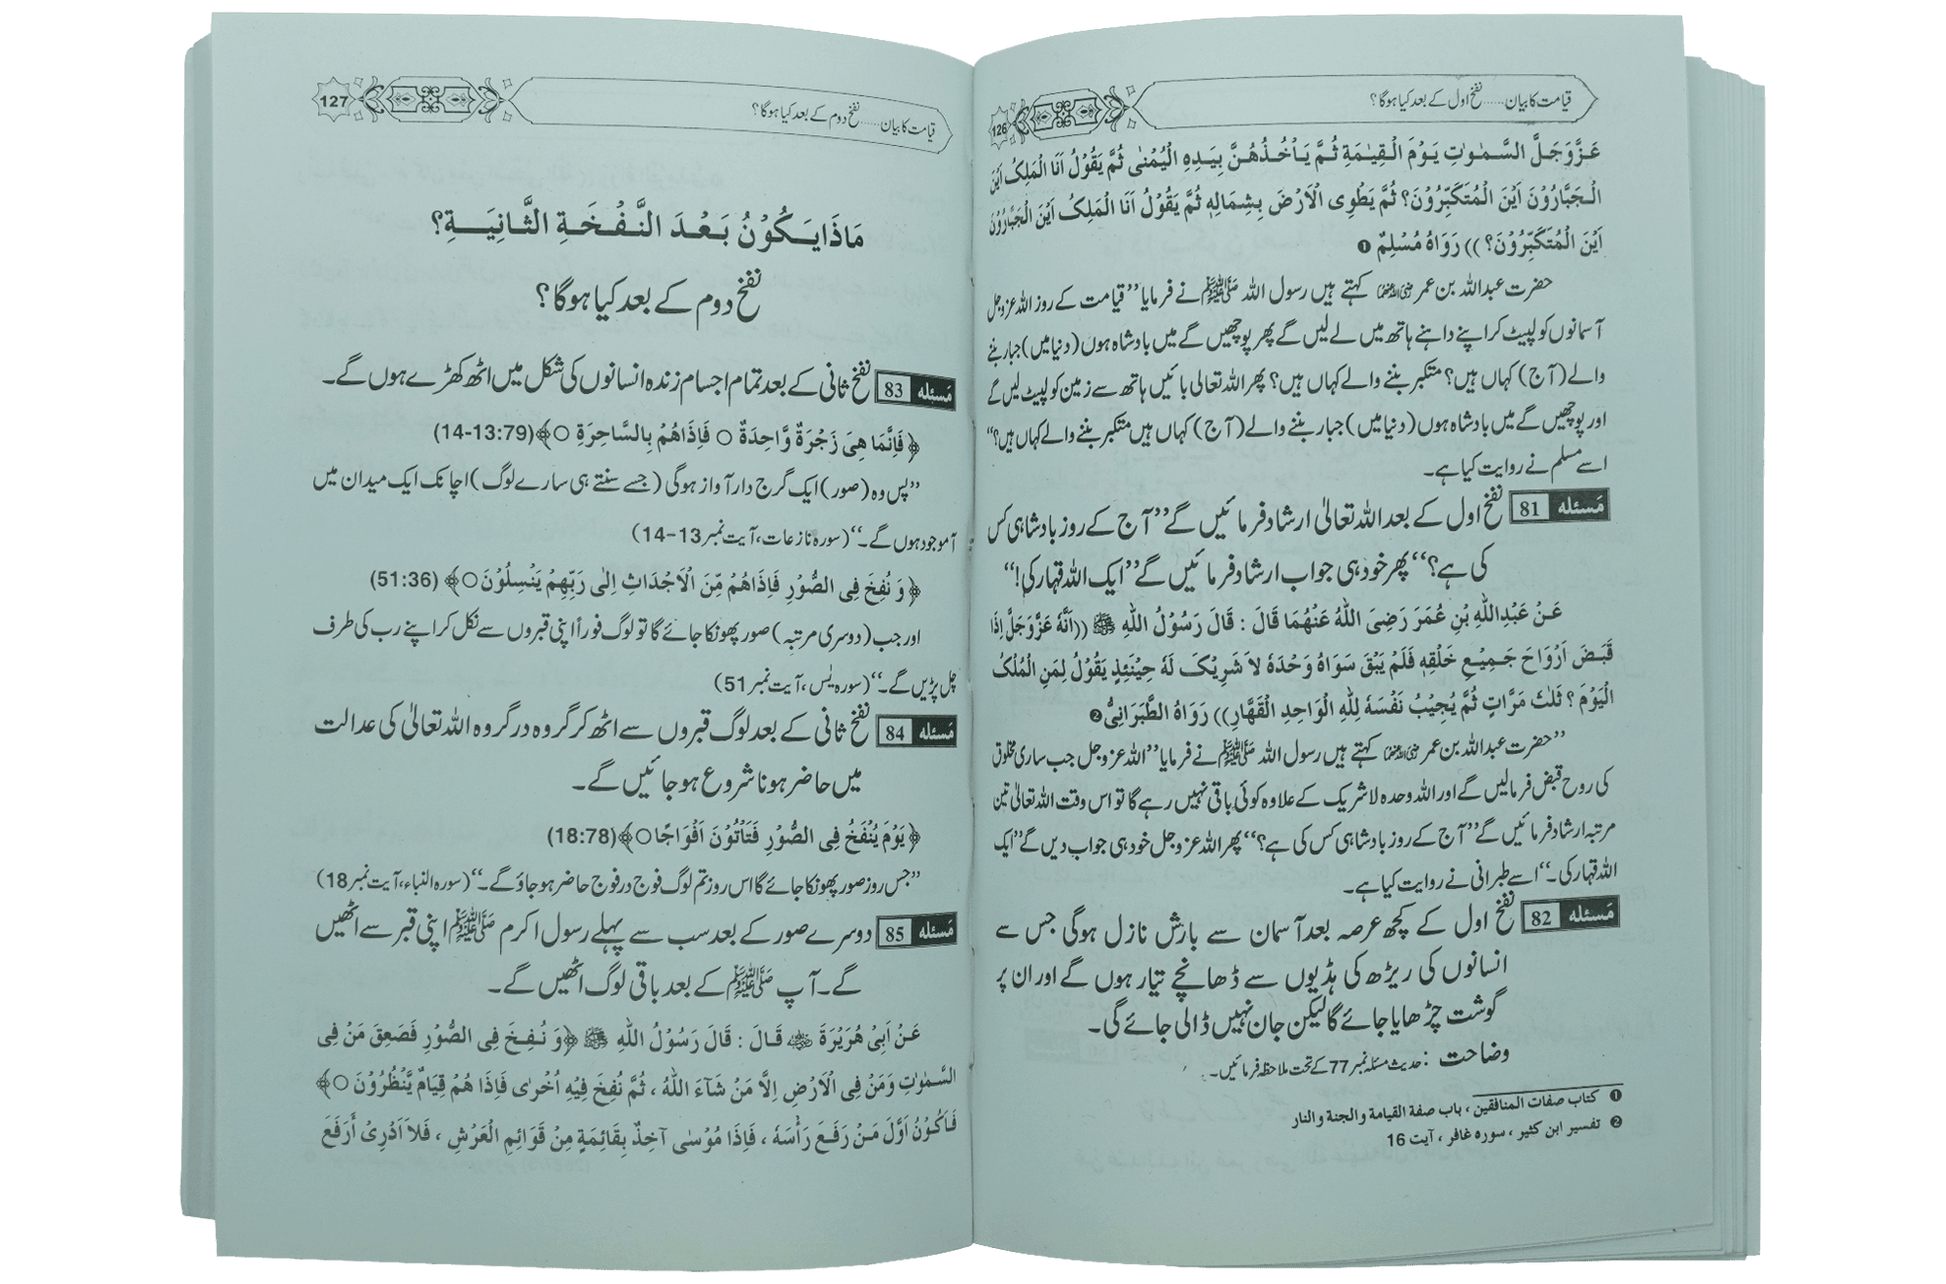 قیامت کا بیان ...... نفخ اول کے بعد کیا ہوگا؟
126
عَزَّوَجَلَّ السَّمٰوٰتِ يَوْمَ الْقِيٰمَةِ ثُمَّ يَأْخُذُهُنَّ بِيَدِهِ الْيُمْنٰى ثُمَّ يَقُوْلُ اَنَا الْمَلِكُ اَيْنَ
الْجَبَّارُوْنَ اَيْنَ الْمُتَكَبِّرُوْنَ؟ ثُمَّ يَطْوِى الْاَرْضَ بِشِمَالِهٖ ثُمَّ يَقُوْلُ اَنَا الْمَلِكُ اَيْنَ الْجَبَّارُوْنَ
اَيْنَ الْمُتَكَبِّرُوْنَ؟ )) رَوَاهُ مُسْلِمٌ ❶
حضرت عبداللہ بن عمر رضی اللہ عنہما کہتے ہیں رسول اللہ ﷺ نے فرمایا ’’قیامت کے روز اللہ عزوجل
آسمانوں کو لپیٹ کر اپنے داہنے ہاتھ میں لے لیں گے پھر پوچھیں گے میں بادشاہ ہوں (دنیا میں) جبار بننے
والے (آج) کہاں ہیں؟ متکبر بننے والے کہاں ہیں؟ پھر اللہ تعالی بائیں ہاتھ سے زمین کو لپیٹ لیں گے
اور پوچھیں گے میں بادشاہ ہوں (دنیا میں) جبار بننے والے (آج) کہاں ہیں متکبر بننے والے کہاں ہیں؟‘‘
اسے مسلم نے روایت کیا ہے۔
مَسئله 81 نفخ اول کے بعد اللہ تعالیٰ ارشاد فرمائیں گے ’’آج کے روز بادشاہی کس
کی ہے؟‘‘ پھر خود ہی جواب ارشاد فرمائیں گے ’’ایک اللہ قہار کی!‘‘
عَنْ عَبْدِاللّٰهِ بْنِ عُمَرَ رَضِىَ اللّٰهُ عَنْهُمَا قَالَ : قَالَ رَسُوْلُ اللّٰهِ ﷺ ((اَنَّهُ عَزَّوَجَلَّ اِذَا
قَبَضَ اَرْوَاحَ جَمِيْعِ خَلْقِهٖ فَلَمْ يَبْقَ سَوَاهُ وَحْدَهٗ لاَ شَرِيْكَ لَهٗ حِيْنَئِذٍ يَقُوْلُ لِمَنِ الْمُلْكُ
الْيَوْمَ ؟ ثَلٰثَ مَرَّاتٍ ثُمَّ يُجِيْبُ نَفْسَهٗ لِلّٰهِ الْوَاحِدِ الْقَهَّارِ)) رَوَاهُ الطَّبَرَانِىُّ ❷
’’حضرت عبداللہ بن عمر رضی اللہ عنہما کہتے ہیں رسول اللہ ﷺ نے فرمایا ’’اللہ عزوجل جب ساری مخلوق
کی روح قبض فرمالیں گے اور اللہ وحدہ لا شریک کے علاوہ کوئی باقی نہیں رہے گا تو اس وقت اللہ تعالیٰ تین
مرتبہ ارشاد فرمائیں گے ’’آج کے روز بادشاہی کس کی ہے؟‘‘ پھر اللہ عزوجل خود ہی جواب دیں گے ’’ایک
اللہ قہار کی۔‘‘ اسے طبرانی نے روایت کیا ہے۔
مَسئله 82 نفخ اول کے کچھ عرصہ بعد آسمان سے بارش نازل ہوگی جس سے
انسانوں کی ریڑھ کی ہڈیوں سے ڈھانچے تیار ہوں گے اور ان پر
گوشت چڑھایا جائے گا لیکن جان نہیں ڈالی جائے گی۔
وضاحت : حدیث مسئلہ نمبر 77 کے تحت ملاحظہ فرمائیں۔
❶ كتاب صفات المنافقين ، باب صفة القيامة والجنة والنار
❷ تفسير ابن كثير ، سوره غافر ، آيت 16
قیامت کا بیان ...... نفخ دوم کے بعد کیا ہوگا؟
127
مَاذَا يَكُوْنُ بَعْدَ النَّفْخَةِ الثَّانِيَةِ؟
نفخ دوم کے بعد کیا ہوگا؟
مَسئله 83 نفخ ثانی کے بعد تمام اجسام زندہ انسانوں کی شکل میں اٹھ کھڑے ہوں گے۔
﴿ فَاِنَّمَا هِىَ زَجْرَةٌ وَّاحِدَةٌ ○ فَاِذَاهُمْ بِالسَّاهِرَةِ ○ ﴾(14-13:79)
’’پس وہ (صور) ایک گرج دار آواز ہوگی (جسے سنتے ہی سارے لوگ) اچانک ایک میدان میں
آموجود ہوں گے۔‘‘ (سورہ نازعات، آیت نمبر 13-14)
﴿ وَ نُفِخَ فِى الصُّوْرِ فَاِذَاهُمْ مِّنَ الْاَجْدَاثِ اِلٰى رَبِّهِمْ يَنْسِلُوْنَ ○﴾ (51:36)
اور جب (دوسری مرتبہ) صور پھونکا جائے گا تو لوگ فوراً اپنی قبروں سے نکل کر اپنے رب کی طرف
چل پڑیں گے۔‘‘ (سورہ یٰس، آیت نمبر 51)
مَسئله 84 نفخ ثانی کے بعد لوگ قبروں سے اٹھ کر گروہ در گروہ اللہ تعالیٰ کی عدالت
میں حاضر ہونا شروع ہو جائیں گے۔
﴿ يَوْمَ يُنْفَخُ فِى الصُّوْرِ فَتَاْتُوْنَ اَفْوَاجًا ○﴾(18:78)
’’جس روز صور پھونکا جائے گا اس روز تم لوگ فوج در فوج حاضر ہو جاؤ گے۔‘‘ (سورہ النباء، آیت نمبر 18)
مَسئله 85 دوسرے صور کے بعد سب سے پہلے رسول اکرم ﷺ اپنی قبر سے اٹھیں
گے۔ آپ ﷺ کے بعد باقی لوگ اٹھیں گے۔
عَنْ اَبِىْ هُرَيْرَةَ ؓ قَالَ : قَالَ رَسُوْلُ اللّٰهِ ﷺ ﴿وَ نُفِخَ فِى الصُّوْرِ فَصَعِقَ مَنْ فِى
السَّمٰوٰتِ وَمَنْ فِى الْاَرْضِ اِلَّا مَنْ شَآءَ اللّٰهُ ، ثُمَّ نُفِخَ فِيْهِ اُخْرٰى فَاِذَا هُمْ قِيَامٌ يَّنْظُرُوْنَ ○ ﴾
فَاَكُوْنُ اَوَّلَ مَنْ رَفَعَ رَأْسَهٗ ، فَاِذَا مُوْسٰى آخِذٌ بِقَائِمَةٍ مِنْ قَوَائِمِ الْعَرْشِ ، فَلاَ اَدْرِىْ أَرَفَعَ